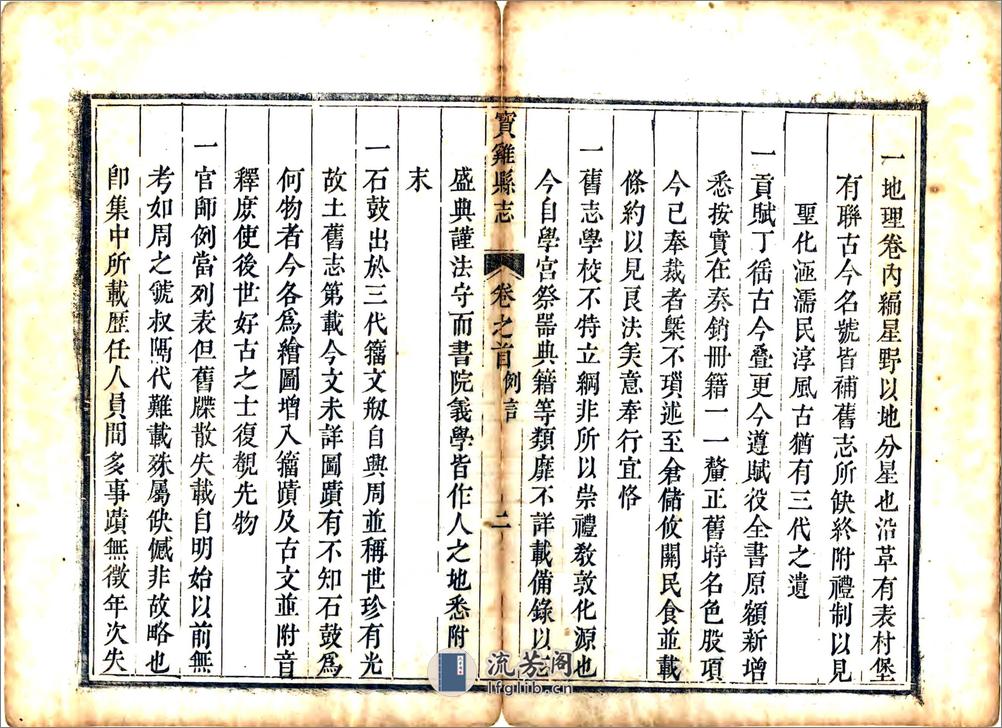 一地理卷內編星野以地分星也沿革有表村堡
有聯古今名號皆補舊志所缺終附禮制以見
聖化涵濡民淳風古猶有三代之遺
一貢賦丁徭古今叠更今遵賦役全書原額新增
悉按實在奏銷冊籍一一釐正舊時名色股項
今已奉裁者槩不瑣述至倉儲攸關民食並載
條約以見良法美意奉行宜恪
一舊志學校不特立綱非所以崇禮教敦化源也
今自學宮祭器典籍等類靡不詳載備錄以
寶雞縣志
卷之首
例言
二
盛典謹法守而書院義學皆作人之地悉附
末
一石鼓出於三代籀文刱自興周並稱世珍有光
故土舊志第載今文未詳圖蹟有不知石鼓爲
何物者今各爲繪圖增入籀蹟及古文並附音
釋庶使後世好古之士復覩先物
一官師例當列表但舊牒散失載自明始以前無
考如周之虢叔隔代難載殊屬缺憾非故略也
卽集中所載歷任人員間多事蹟無徵年次失
流芳阁
lfglib.cn